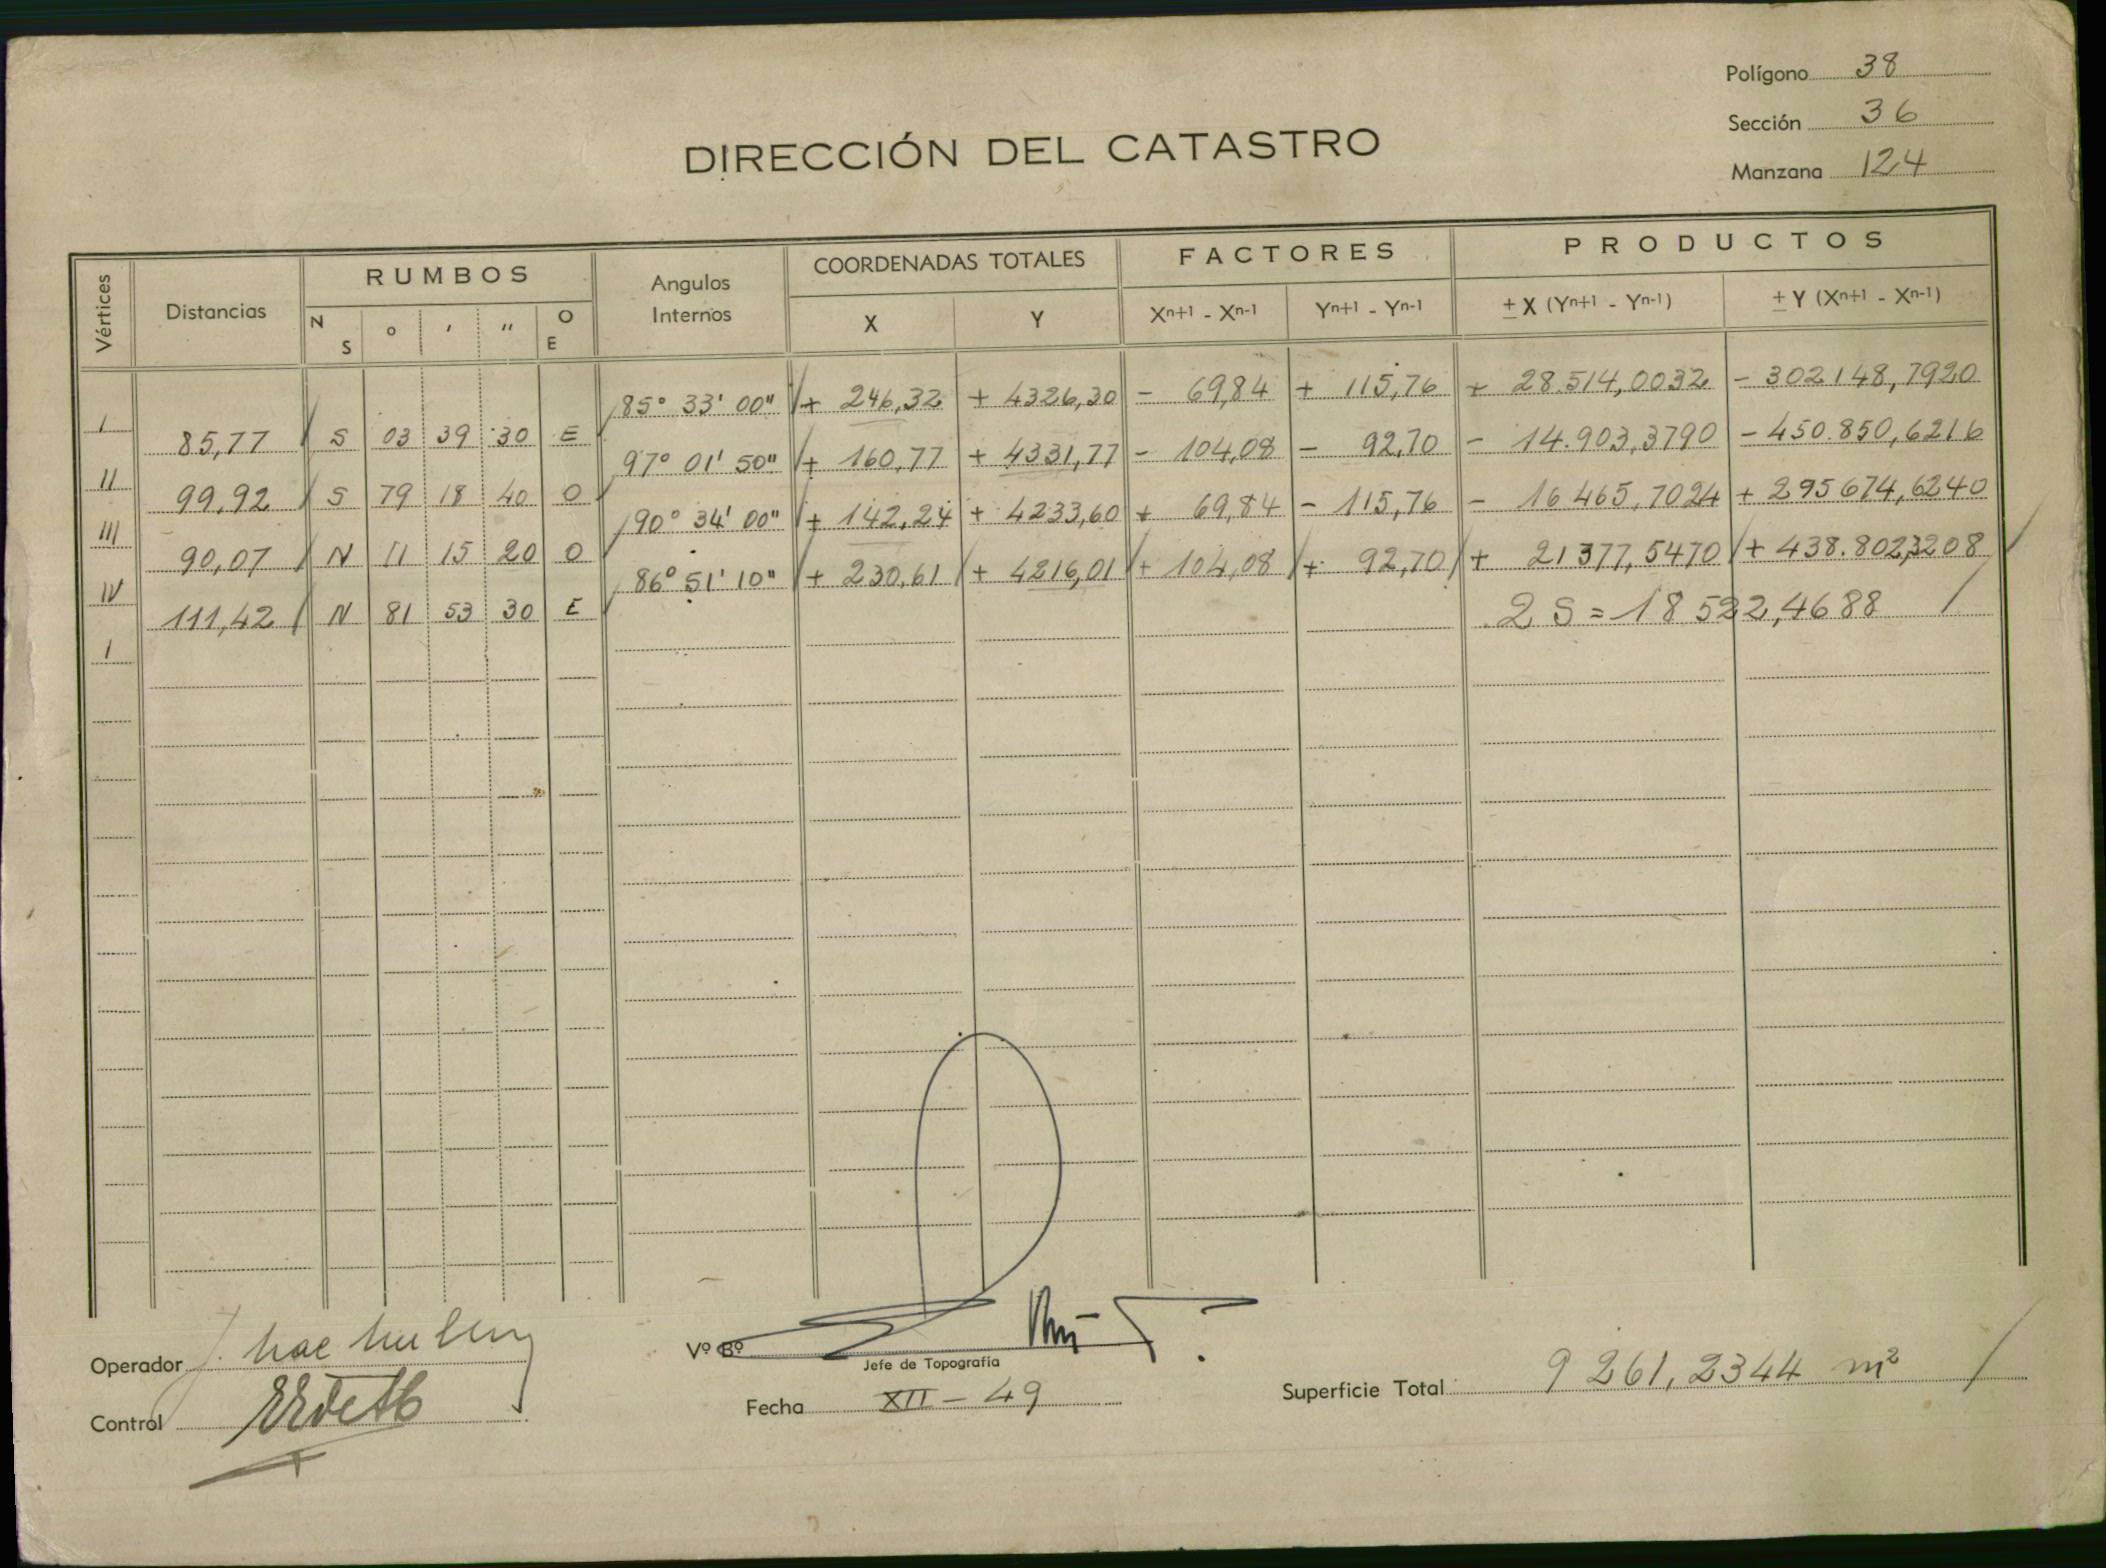 Polígono 38
Sección 36
Manzana 124
DIRECCIÓN DEL CATASTRO
Vértices Distancias RUMBOS Angulos Internos COORDENADAS TOTALES FACTORES PRODUCTOS
N S ° ' '' O E X Y Xn+1 - Xn-1 Yn+1 - Yn-1 ± X (Yn+1 - Yn-1) ± Y (Xn+1 - Xn-1)
85° 33' 00" + 246,32 + 4326,30 - 69,84 + 115,76 + 28.514,0032 - 302148,7920
I 85,77 S 03 39 30 E
97° 01' 50" + 160,77 + 4331,77 - 104,08 - 92,70 - 14.903,3790 - 450.850,6216
II 99,92 S 79 18 40 O
90° 34' 00" + 142,24 + 4233,60 + 69,84 - 115,76 - 16465,7024 + 295674,6240
III 90,07 N 11 15 20 O
86° 51' 10" + 230,61 + 4216,01 + 104,08 + 92,70 + 21377,5470 + 438.802,3208
IV 111,42 N 81 53 30 E
2 S = 18522,4688
I
Operador
Vº Bº
Jefe de Topografía
Superficie Total 9261,2344 m²
Fecha XII - 49
Control